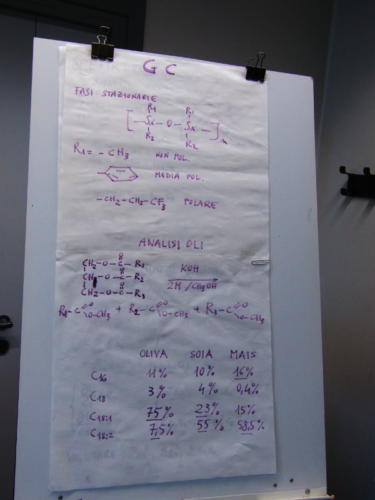 GC
FASI STAZIONARIE
R1 R1
[ -Si-O-Si- ]n
R2 R2
R1= -CH3 NON POL.
MEDIA POL.
-CH2-CH2-CF3 POLARE
ANALISI OLI
CH2-O-C-R1 KOH
CH-O-C-R2 2M/CH3OH
CH2-O-C-R3
R1-C O O-CH3 + R2-C O O-CH3 + R3-C O O-CH3
OLIVA SOIA MAIS
C16 11% 10% 16%
C18 3% 4% 0,4%
C18:1 75% 23% 15%
C18:2 7,5% 55% 58,5%